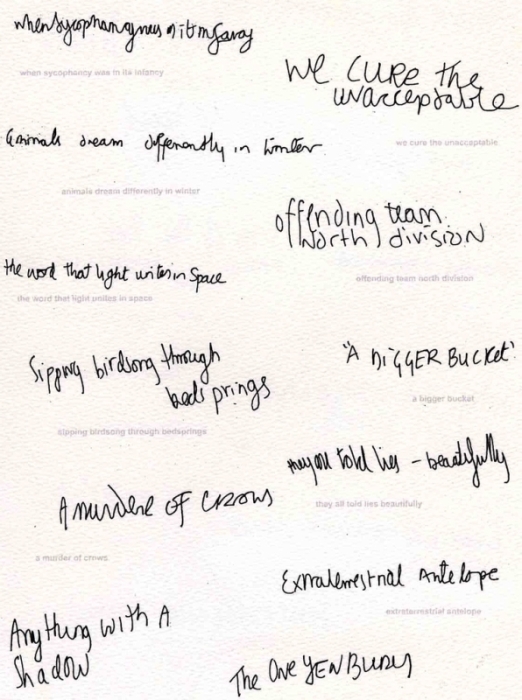 when sycophancy was in its infancy
when sycophancy was in its infancy
WE CURE the
unacceptable
we cure the unacceptable
Animals dream differently in Winter
animals dream differently in winter
offending team
North division
offending team north division
the word that light writes in Space
the word that light writes in space
Sipping birdsong through
bedsprings
sipping birdsong through bedsprings
"A BIGGER BUCKET"
a bigger bucket
they all told lies - beautifully
they all told lies beautifully
A murdere OF CROWS
a murder of crows
Extraterrestrial Antelope
extraterrestrial antelope
Anything with A
Shadow
The One YEN